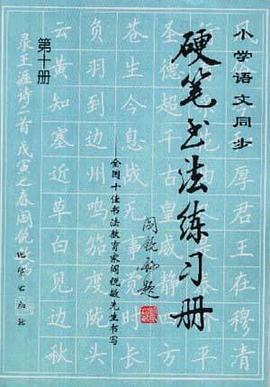 小学语文同步
硬笔书法练习册
第十册
——全国十佳书法教育家阎锐敏先生书写
阎锐敏题
厚君王在穆清
圣德超千古皇威
苍生今息战无事
负羽到边州鸣笳度陇头
云黄知塞近草白见边秋
录王涯诗二首戊寅之春阎锐敏
地震出版社